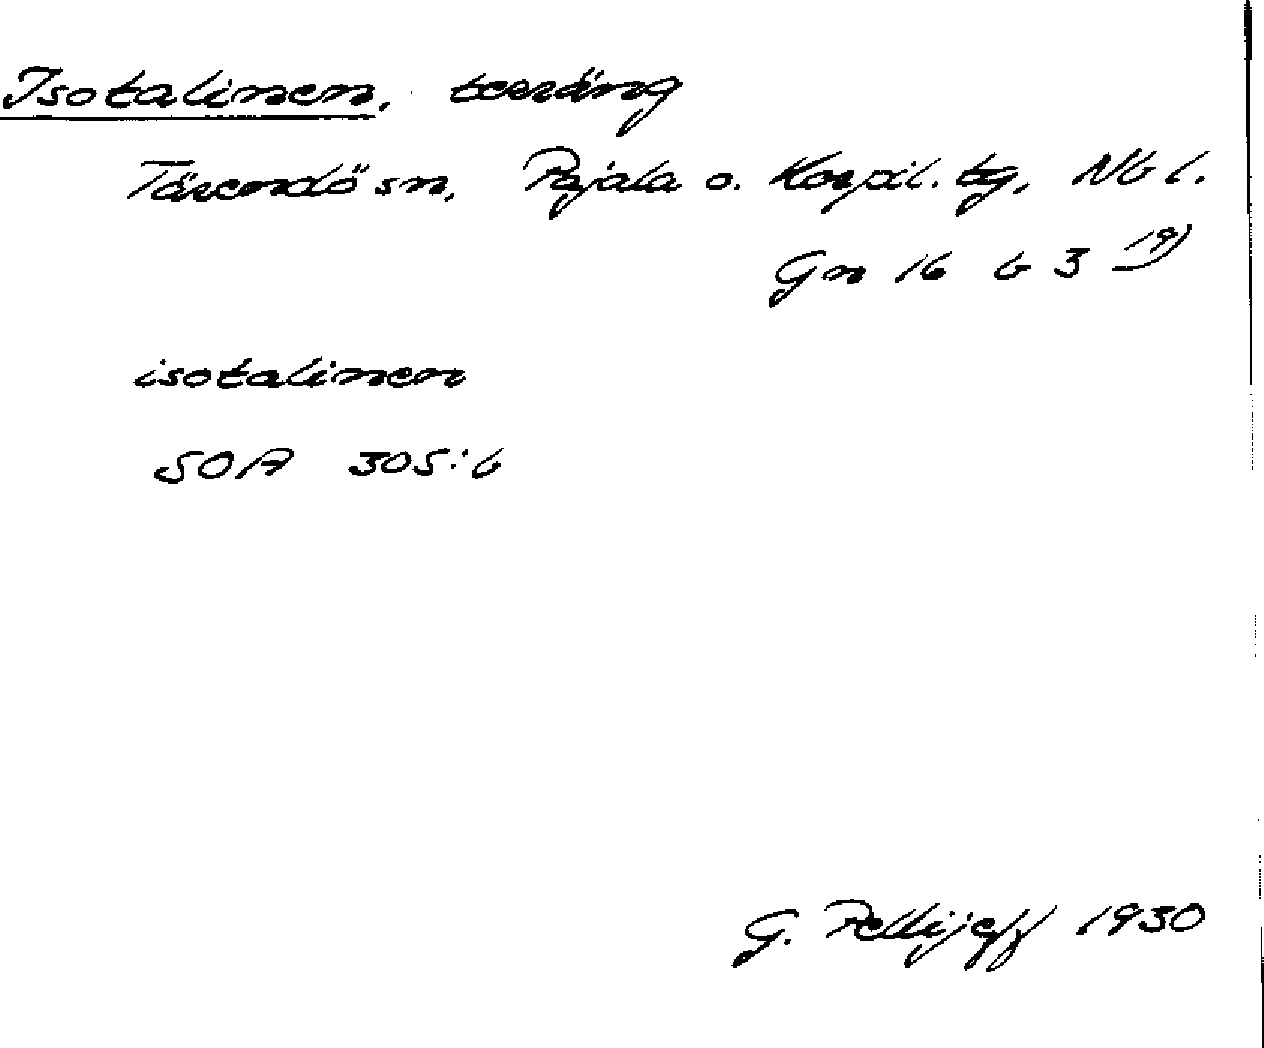 Isotalinen, terräng
Tärendö sn, Pajala o. Korpil. tg, Nb l.
Gn 16 b 3 19)
isotalinen
SOA 305:6
G. Pellijeff 1930